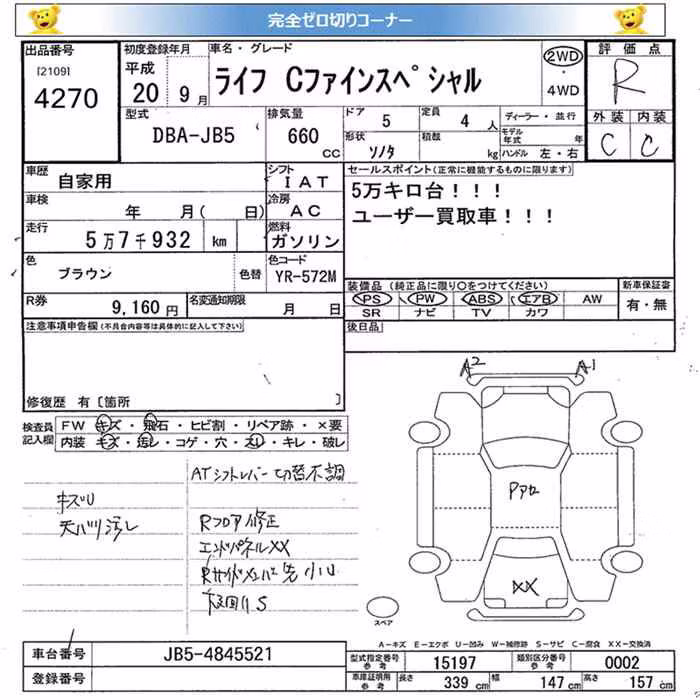 完全ゼロ切りコーナー
出品番号
[2109]
4270
初度登録年月
平成
20 9月
車名・グレード
ライフ Cファインスペシャル
2WD
・
4WD
評価点
R
外装 内装
C C
型式
DBA-JB5
排気量
660
CC
ドア
5
定員
4 人
形状
ソノタ
積載
kg
ディーラー・並行
モデル年式 年
ハンドル 左・右
車歴
自家用
シフト
IAT
車検
年 月( 日)
冷房
AC
走行
5万7千932 km
燃料
ガソリン
色
ブラウン
色替
色コード
YR-572M
R券
9,160円
名変通知期限
月 日
セールスポイント(正常に機能するものに限ります)
5万キロ台!!!
ユーザー買取車!!!
装備品(純正品に限り〇をつけてください)
PS PW ABS エアB AW
SR ナビ TV カワ
新車保証書
有・無
後日品
注意事項申告欄(不具合内容等は具体的に記入して下さい)
修復歴 有〔箇所 〕
検査員記入欄
FW キズ・飛石・ヒビ割・リペア跡・×要
内装 キズ・汚し・コゲ・穴・スレ・キレ・破レ
ATシフトレバー切替不調
キズU
天バリ汚レ
Rフロア修正
エンドパネルXX
Rサイドメンバー先小U
下回りS
A2
A1
Pアロ
XX
スペア
A-キズ E-エクボ U-凹み W-補修跡 S-サビ C-腐食 XX-交換済
車台番号
JB5-4845521
登録番号
型式指定番号
参考
15197
類別区分番号
参考
0002
車庫証明用
参考
長さ
339 cm
幅
147 cm
高さ
157 cm